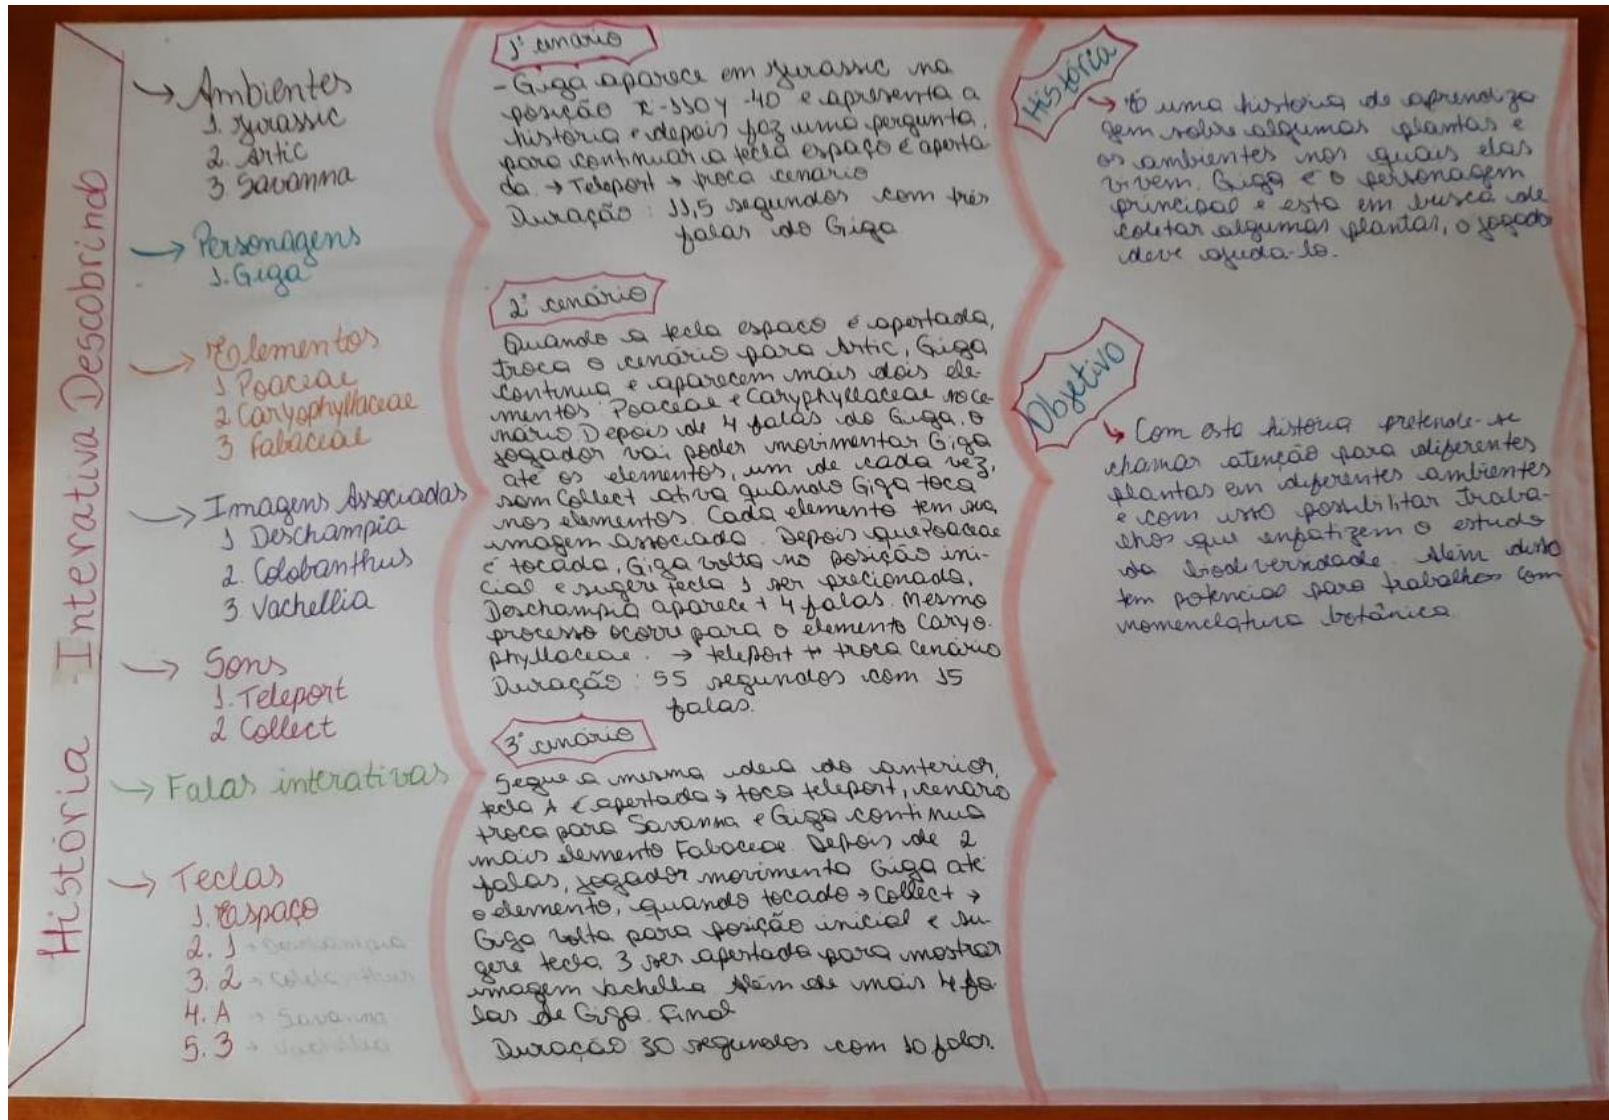 História - Interativa Descobrindo
→ Ambientes
1. Jurassic
2. Artic
3 Savanna
→ Personagens
1. Giga
→ Elementos
1 Poaceae
2 Caryophyllaceae
3 Fabaceae
→ Imagens Associadas
1 Deschampia
2. Colobanthus
3 Vachellia
→ Sons
1. Teleport
2 Collect
→ Falas interativas
→ Teclas
1. Espaço
2. 1 → Deschampia
3. 2 → Colobanthus
4. A → Savanna
5. 3 → Vachellia
1° cenário
- Giga aparece em Jurassic na
posição x-110 y -40 e apresenta a
história e depois faz uma pergunta,
para continuar a tecla espaço é aperta
da. → Teleport → troca cenário
Duração: 11,5 segundos com três
falas do Giga
2° cenário
Quando a tecla espaço é apertada,
troca o cenário para Artic, Giga
continua e aparecem mais dois ele-
mentos: Poaceae e Caryphyllaceae no ce-
nário. Depois de 4 falas do Giga, o
jogador vai poder movimentar Giga
até os elementos, um de cada vez,
som Collect ativa quando Giga toca
nos elementos. Cada elemento tem sua
imagem associada. Depois que Poaceae
é tocada, Giga volta na posição ini-
cial e sugere tecla 1 ser precionada,
Deschampia aparece + 4 falas. Mesmo
processo ocorre para o elemento Caryo-
phyllaceae. → teleport → troca cenário
Duração: 55 segundos com 15
falas.
3° cenário
Segue a mesma ideia do anterior,
tecla A é apertada → toca teleport, cenário
troca para Savanna e Giga continua
mais elemento Fabaceae. Depois de 2
falas, jogador movimenta Giga até
o elemento, quando tocado → Collect →
Giga volta para posição inicial e su-
gere tecla 3 ser apertada para mostrar
imagem vachellia. Além de mais 4 fa-
las de Giga. Final
Duração 30 segundos com 10 falas.
História
→ É uma história de aprendiza
gem sobre algumas plantas e
os ambientes nos quais elas
vivem. Giga é o personagem
principal e está em busca de
coletar algumas plantas, o jogador
deve ajuda-lo.
Objetivo
→ Com esta história pretende-se
chamar atenção para diferentes
plantas em diferentes ambientes
e com isso possibilitar traba-
lhos que enfatizem o estudo
da biodiversidade. Além disso
tem potencial para trabalhos com
nomenclatura botânica.